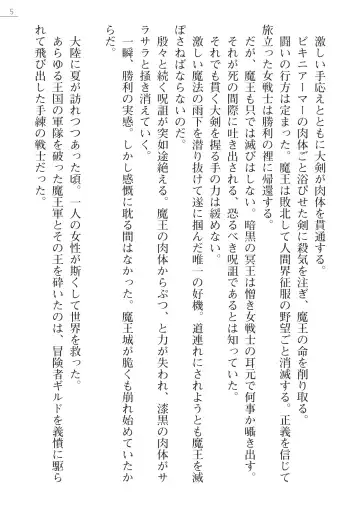 5
激しい手応えとともに大剣が肉体を貫通する。
ビキニアーマーの肉体ごと浴びせた剣に殺気を注ぎ、魔王の命を削り取る。
闘いの行方は定まった。魔王は敗北して人間界征服の野望ごと消滅する。正義を信じて
旅立った女戦士は勝利の裡に帰還する。
だが、魔王も只では滅びはしない。暗黒の冥王は憎き女戦士の耳元で何事か囁き出す。
それが死の間際に吐き出される、恐るべき呪詛であるとは知っていた。
それでも貫く大剣を握る手の力は緩めない。
激しい魔法の雨下を潜り抜けて遂に掴んだ唯一の好機。道連れにされようとも魔王を滅
ぼさねばならないのだ。
殷々と続く呪詛が突如途絶える。魔王の肉体からぷつ、と力が失われ、漆黒の肉体がサ
ラサラと掻き消えていく。
一瞬、勝利の実感。しかし感慨に耽る間はなかった。魔王城が脆くも崩れ始めていたか
らだ。
大陸に夏が訪れつつあった頃。一人の女性が斯くして世界を救った。
あらゆる王国の軍隊を破った魔王軍とその王を砕いたのは、冒険者ギルドを義憤に駆ら
れて飛び出した手練の戦士だった。